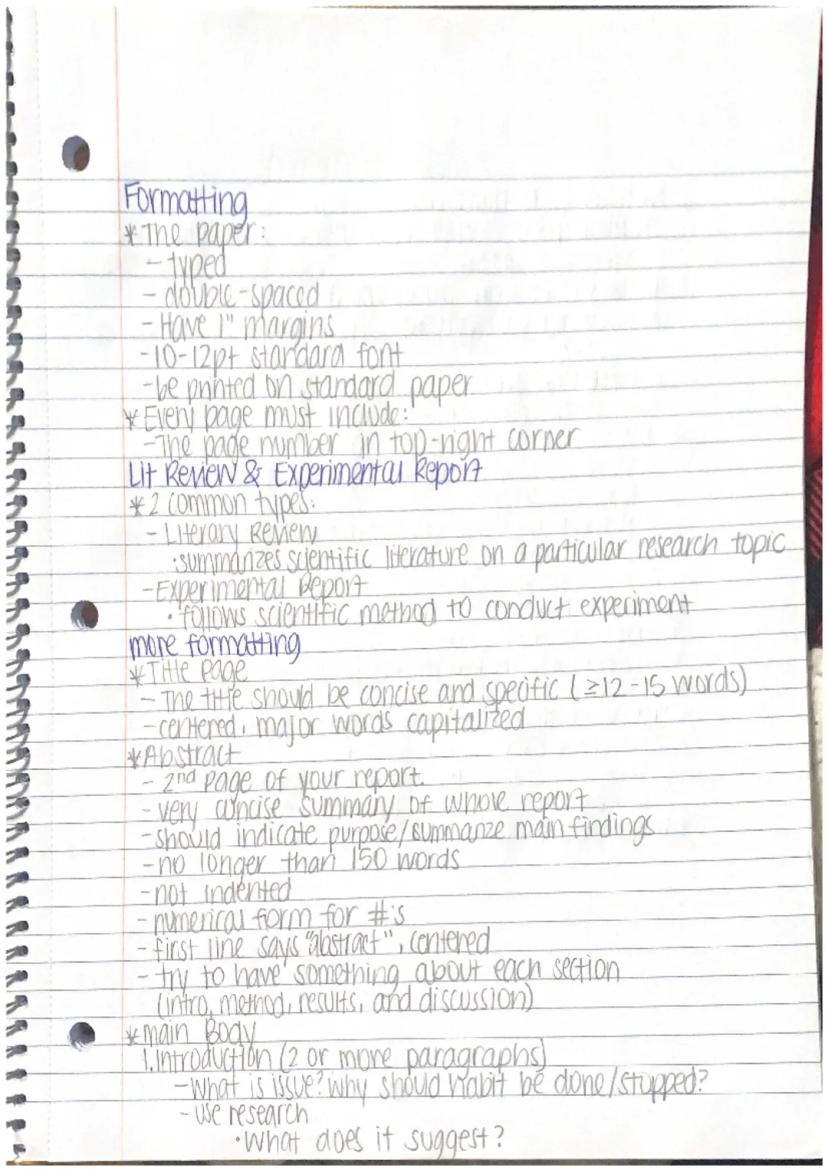 Formatting
* The paper:
- typed
- double-spaced
- Have 1" margins
- 10-12pt standard font
- be printed on standard paper
* Every page must include:
- The page number in top-right corner
Lit Review & Experimental Report
* 2 common types:
- Literary Review
· summarizes scientific literature on a particular research topic
- Experimental Report
· follows scientific method to conduct experiment
more formatting
* Title Page
- The title should be concise and specific (≥12-15 words)
- centered, major words capitalized
* Abstract
- 2nd page of your report.
- very concise summary of whole report
- should indicate purpose/summarize main findings
- no longer than 150 words
- not indented
- numerical form for #'s
- first line says "abstract", centered
- try to have something about each section
(intro, method, results, and discussion)
* main Body
1. Introduction (2 or more paragraphs)
- What is issue? why should habit be done/stopped?
- use research
· What does it suggest?